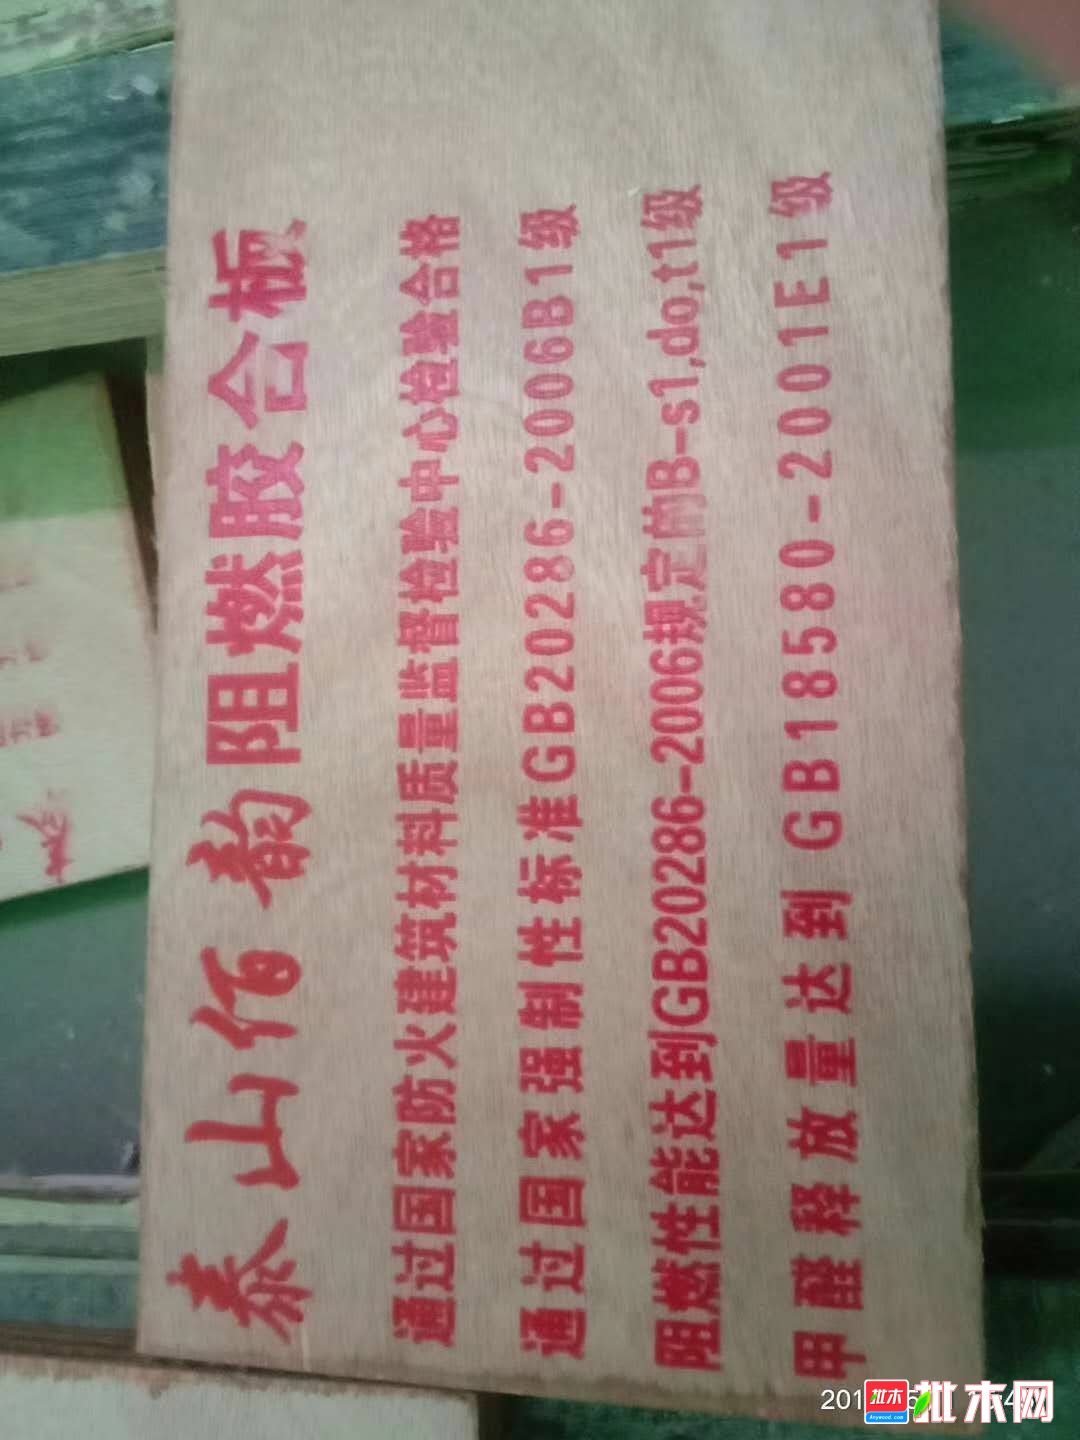 泰山佰韵阻燃胶合板
通过国家防火建筑材料质量监督检验中心检验合格
通过国家强制性标准GB20286-2006B1级
阻燃性能达到GB20286-2006规定的B-s1,do,t1级
甲醛释放量达到GB18580-2001E1级
批木
Anywood.com
批木网